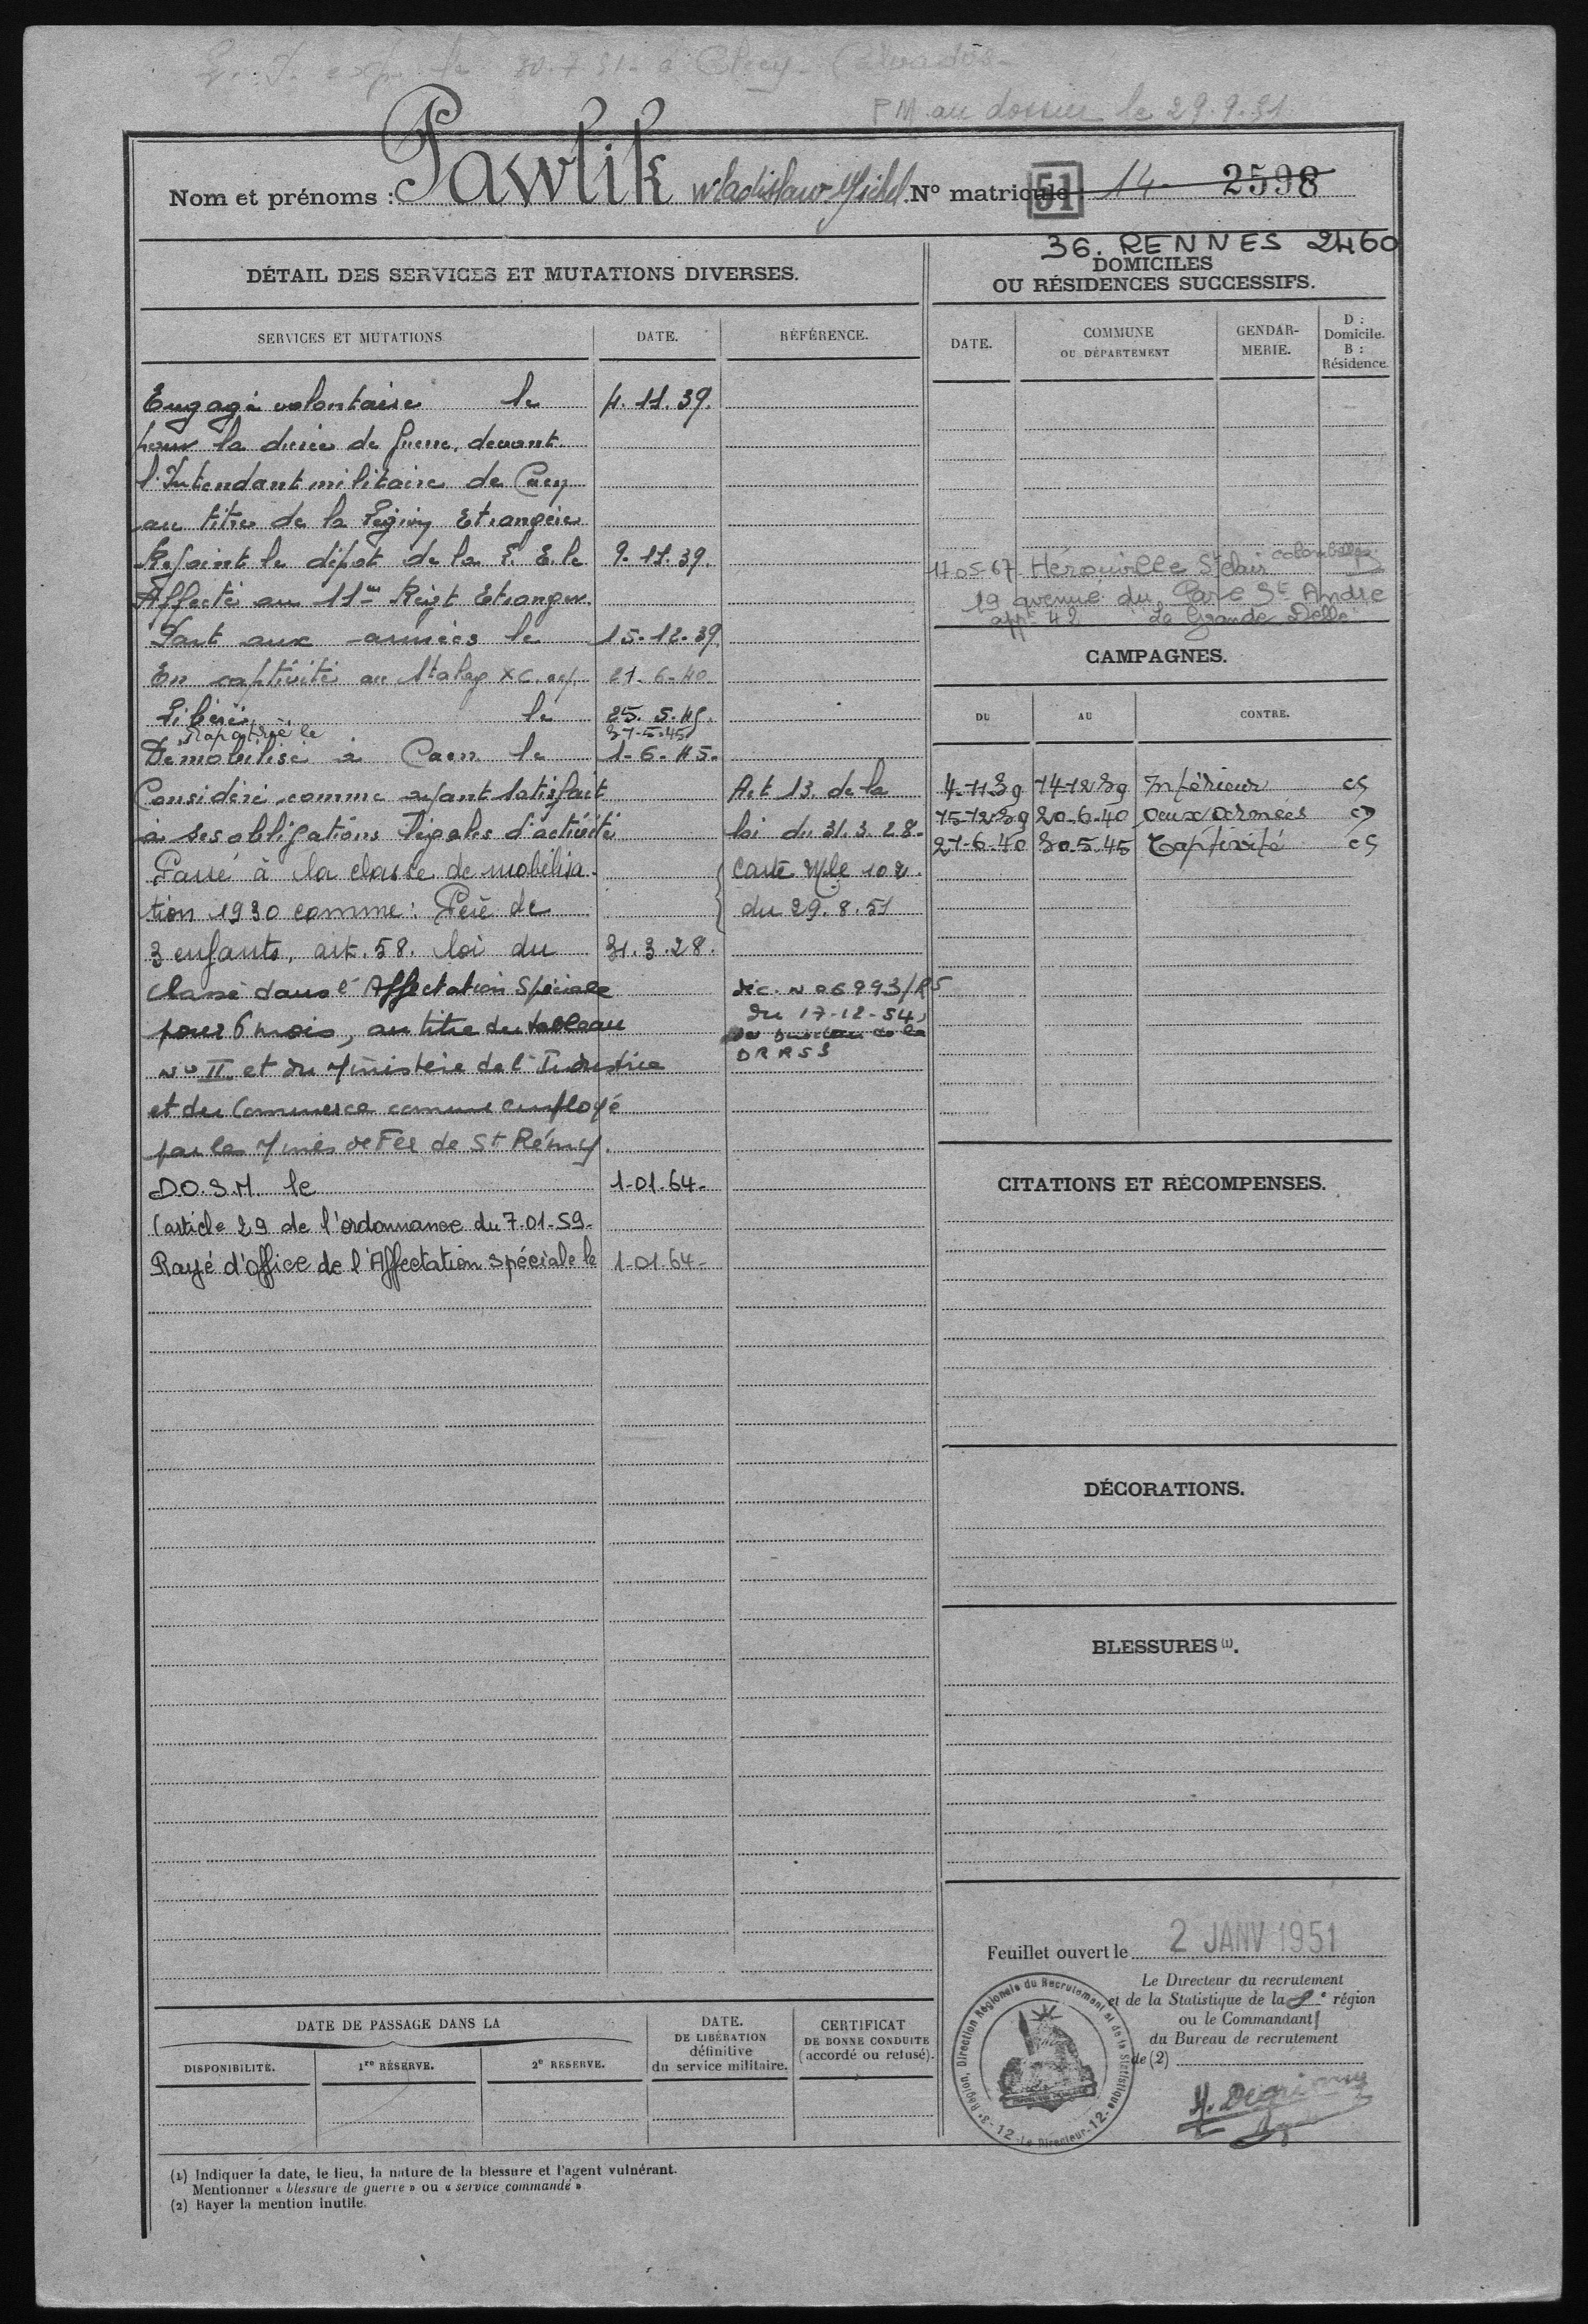 30.7.51 à Clécy - Calvados -
P M au dossier le 29.9.51
Nom et prénoms : Pawlik Wladislaw-Michel N° matricule : 51 14- 2598
36. RENNES 2460
DÉTAIL DES SERVICES ET MUTATIONS DIVERSES.
SERVICES ET MUTATIONS
DATE.
RÉFÉRENCE.
Engagé volontaire le 4.11.39.
pour la durée de guerre, devant
l'Intendant militaire de Caen
au titre de la Légion Etrangère
Rejoint le dépôt de la L. E. le 9.11.39.
Affecté au 11me Reigt Etranger
Part aux armées le 15.12.39.
En captivité au Stalag XC. 21-6-40
Libéré le 25.5.45.
Rapatrié le 31-5-45
Démobilisé à Caen le 1-6-45.
Considéré comme ayant satisfait Art 13 de la
à ses obligations légales d'activité loi du 31.3.28.
Passé à la classe de mobilisa- Carte Mle 102.
tion 1930 comme : Père de du 29.8.51
3 enfants, art. 58. loi du 31.3.28.
Classé dans l'Affectation Spéciale déc. N° 6993/RS
pour 6 mois, au titre du tableau du 17-12-54
de la
n° II et du Ministère de l'Industrie DRRSS
et du Commerce comme employé
par les Mines de Fer de St Rémy.
D.O.S.M. le 1-01.64-
(article 29 de l'ordonnance du 7-01-59-
Rayé d'office de l'Affectation spéciale le 1-01.64-
DOMICILES
OU RÉSIDENCES SUCCESSIFS.
DATE.
COMMUNE
OU DÉPARTEMENT
GENDAR-
MERIE.
D :
Domicile.
B :
Résidence.
17-05-67 Hérouville St Clair Colombelles
19 avenue du Parc St André
appt 42 La Grande Delle
CAMPAGNES.
DU
AU
CONTRE.
4-11-39 14-12-39 Intérieur CS
15-12-39 20-6-40 aux armées CD
21-6-40 30-5-45 Captivité CS
CITATIONS ET RÉCOMPENSES.
DÉCORATIONS.
BLESSURES (1).
Feuillet ouvert le 2 JANV 1951
Le Directeur du recrutement
et de la Statistique de la 8e région
ou le Commandant
du Bureau de recrutement
de (2)
3e Région, Direction Régionale du Recrutement et de la Statistique
-12- Le Directeur -12-
DATE DE PASSAGE DANS LA
DISPONIBILITÉ.
1re RÉSERVE.
2e RÉSERVE.
DATE.
DE LIBÉRATION
définitive
du service militaire.
CERTIFICAT
DE BONNE CONDUITE
(accordé ou refusé).
(1) Indiquer la date, le lieu, la nature de la blessure et l'agent vulnérant.
Mentionner « blessure de guerre » ou « service commandé ».
(2) Rayer la mention inutile.